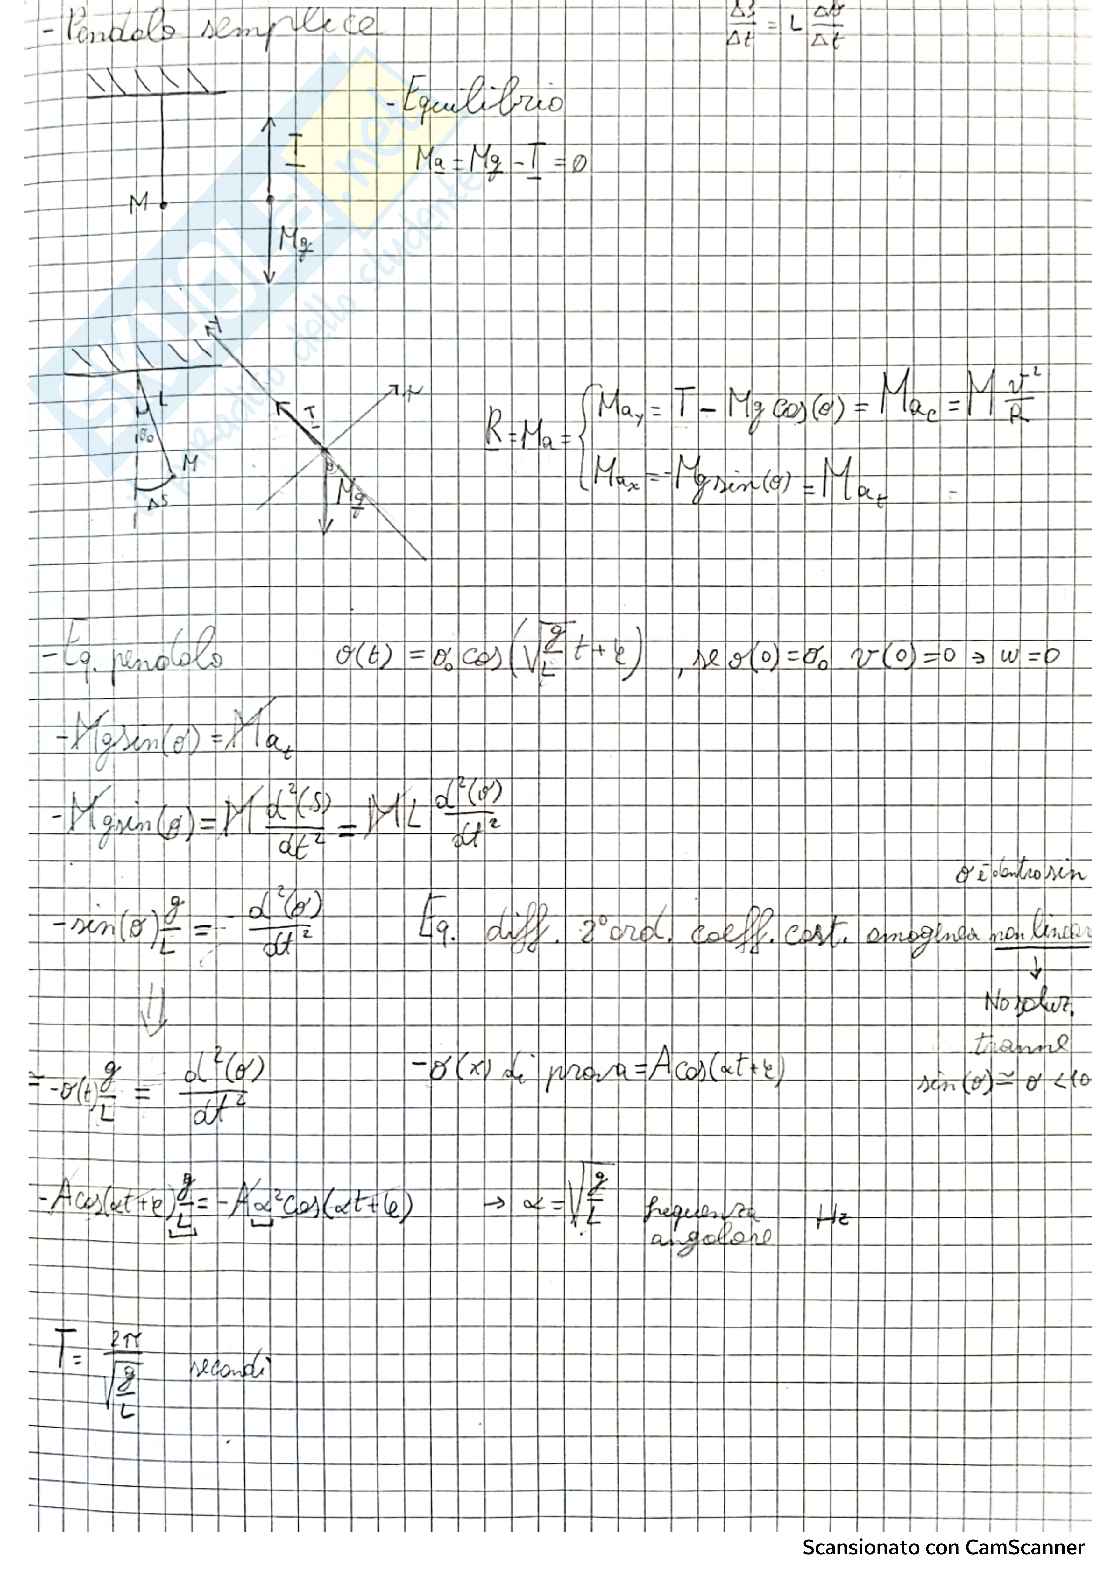 - Pendolo semplice
Δs/Δt = L Δϑ/Δt
- Equilibrio
T
Ma = Mg - T = 0
M
Mg
L
T
ϑ₀
M
Δs
Mg
R = Ma = { Ma_y = T - Mg cos(ϑ) = Ma_c = M v²/R
Ma_x = -Mg sin(ϑ) = Ma_t
- Eq. pendolo ϑ(t) = ϑ₀ cos(√(g/L) t + φ) , se ϑ(0) = ϑ₀ v(0) = 0 ⇒ w = 0
- Mg sin(ϑ) = Ma_t
- Mg sin(ϑ) = M d²(s)/dt² = ML d²(ϑ)/dt²
ϑ è dentro sin
- sin(ϑ) g/L = - d²(ϑ)/dt² Eq. diff. 2° ord. coeff. cost. omogenea non linear
↓
⇓
No soluz.
tranne
sin(ϑ) ≅ ϑ < 10
= -ϑ(t) g/L = d²(ϑ)/dt² - ϑ(x) di prova = A cos(αt + φ)
- A cos(αt + φ) g/L = - A α² cos(αt + φ) → α = √(g/L) frequenza angolare Hz
T = 2π/√(g/L) secondi
SKUOLA.net
Scansionato con CamScanner